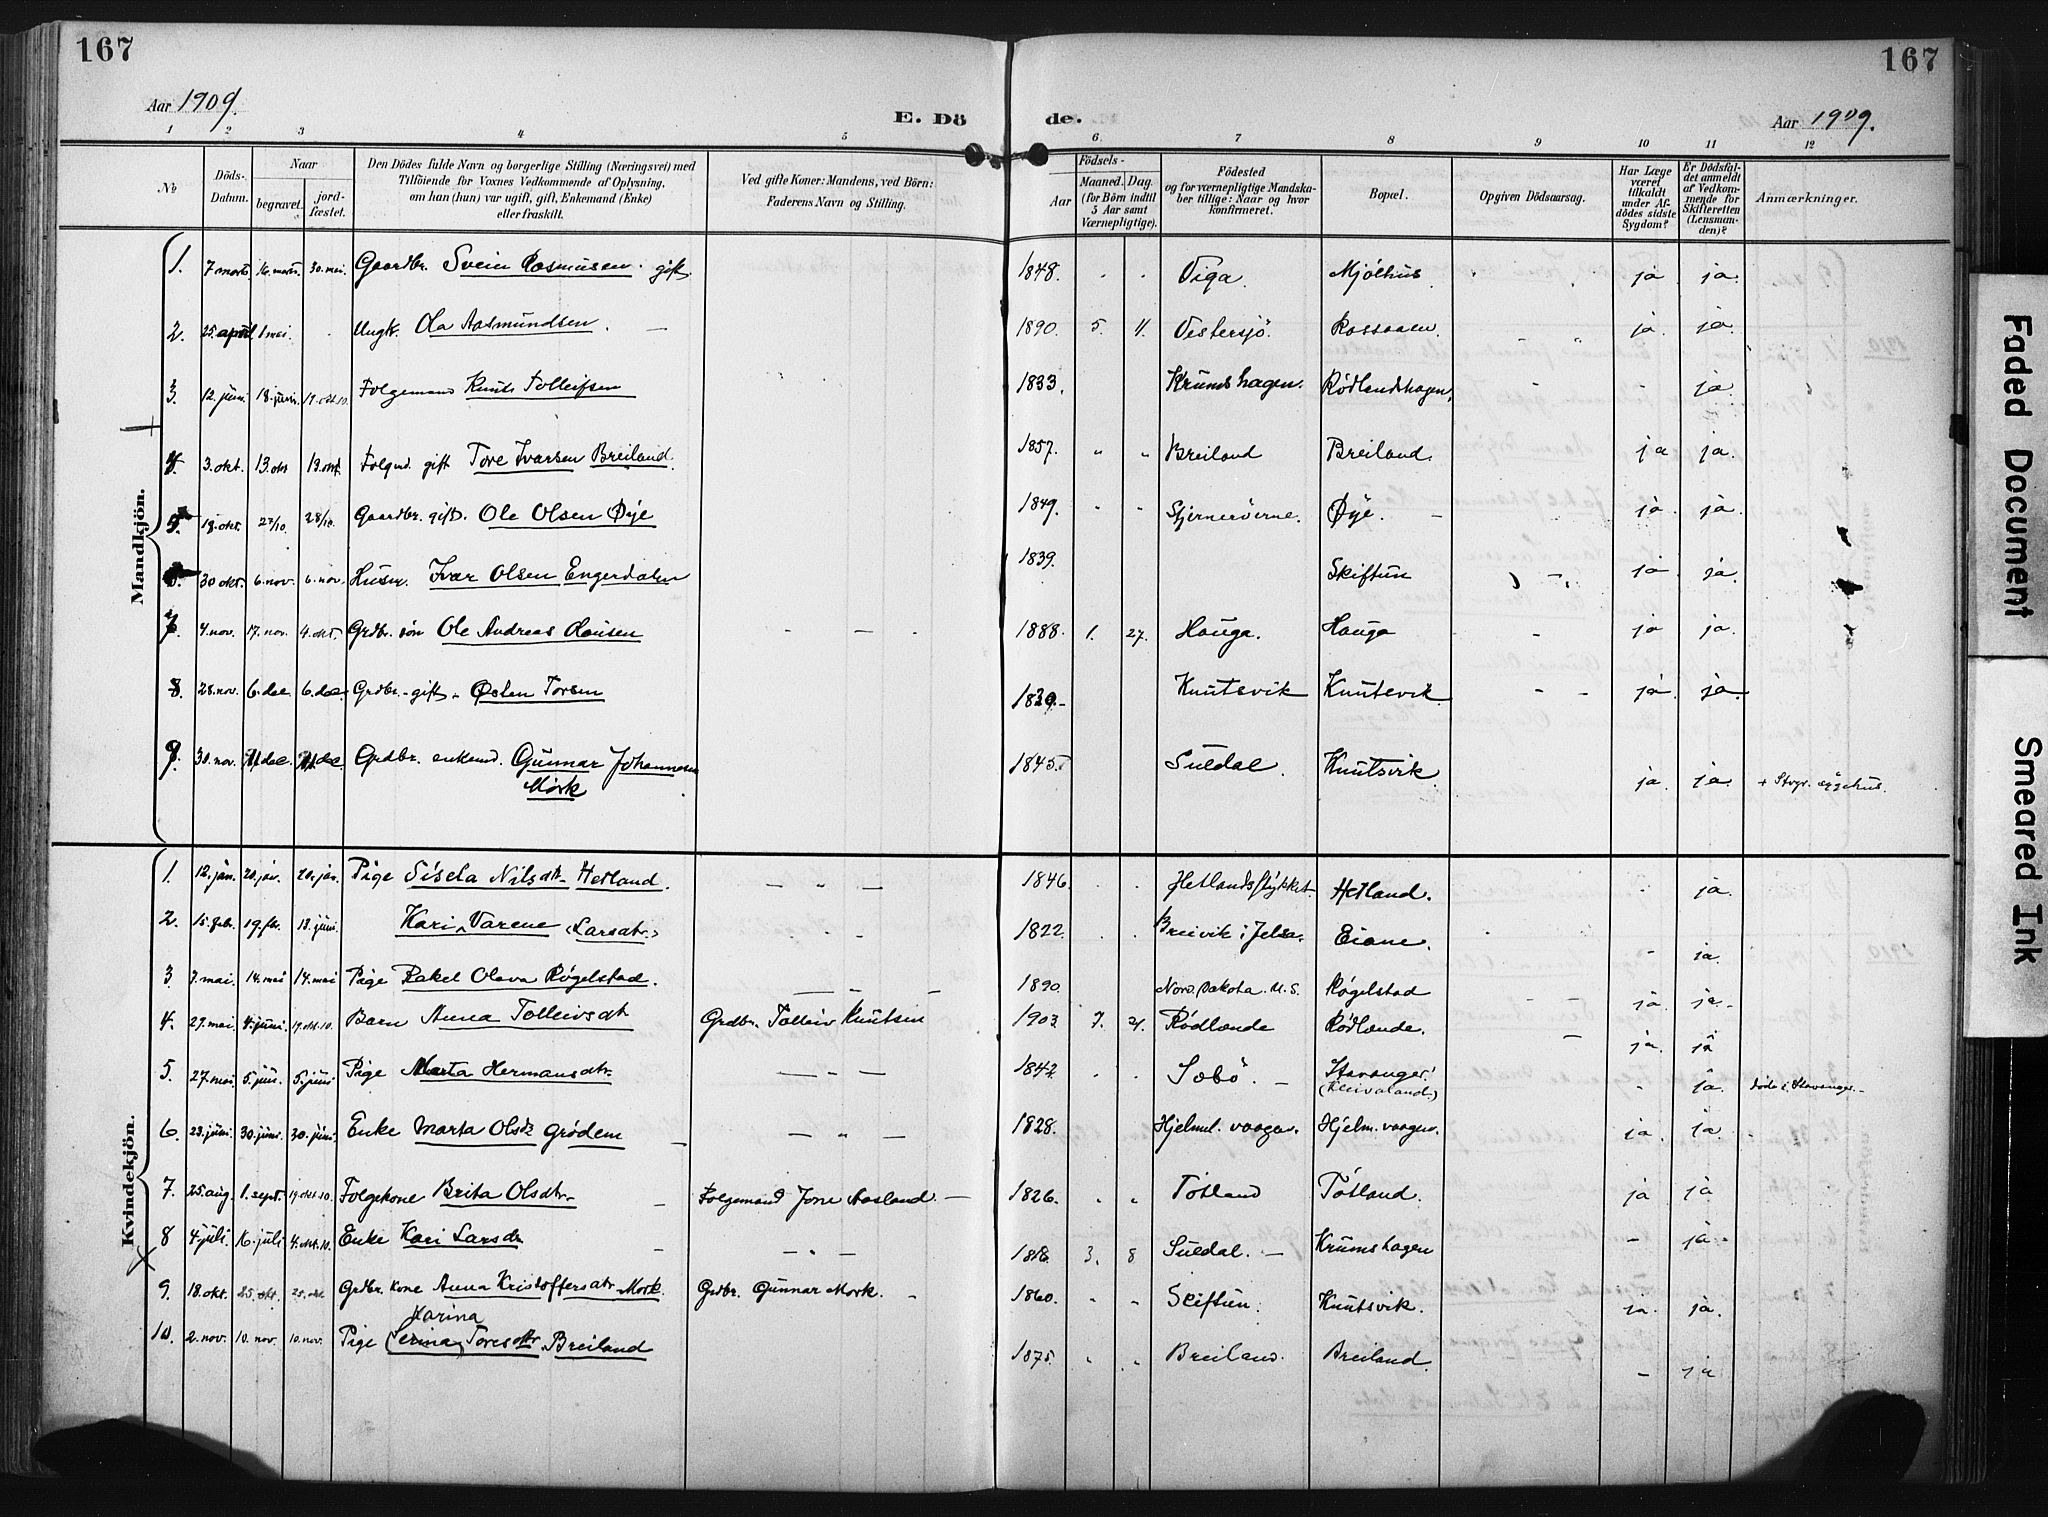 167
167
Aar 1909.
E. Döde.
Aar 1909.
1 2 3 4 5 6 7 8 9 10 11 12
No
Döds-Datum.
Naar
begravet.
jord-fæstet.
Den Dödes fulde Navn og borgerlige Stilling (Næringsvei) med
Tilföiende for Voxnes Vedkommende af Oplysning,
om han (hun) var ugift, gift, Enkemand (Enke)
eller fraskilt.
Ved gifte Koner: Mandens, ved Börn:
Faderens Navn og Stilling.
Födsels-
Aar
Maaned. Dag.
(for Börn indtil
5 Aar samt
Værnepligtige).
Födested
og for værnepligtige Mandska-
ber tillige: Naar og hvor
konfirmeret.
Bopæl.
Opgiven Dödsaarsag.
Har Læge
været
tilkaldt
under Af-
dödes sidste
Sygdom?
Er Dödsfal-
det anmeldt
af Vedkom-
mende for
Skifteretten
(Lensman-
den)?
Anmærkninger.
Mandkjön.
1. 7 marts 16. marts 30. mai. Gaardbr. Svein Rasmusen. gift 1848. Viga. Mjölhus ja ja
2. 25. april 1 mai. Ungk. Ola Aasmundsen. 1890 5. 11. Vestersjö. Rossaaen. ja. ja.
3. 12. juni. 18. juni. 19. okt. 10. Folgemand Knut Tolleifsen 1833. Krumshagen. Rödlandshagen. ja.
4. 3. okt. 13. okt 13. okt. Folgmd. gift Tore Ivarsen Breiland. 1857. Breiland Breiland. ja ja.
5. 18. okt. 27/10. 28/10. Gaardbr. gift. Ole Olsen Øye 1849. Stjerneröerne. Øye. ja ja.
6. 30 okt. 6. nov. 6. nov. Husm. Ivar Olsen Engerdalen 1839. Skiftun ja ja.
7. 4. nov. 17. nov. 4. okt. Grdbr. sön Ole Andreas Hansen 1888. 1. 27. Hauga. Hauga ja ja.
8. 28. nov. 6. dec 6. dec. Grdbr. - gift - Østen Torsen Knutsvik Knutsvik ja ja.
9. 30. nov. dec. dec. Grdbr. enkemd. Gunnar Johannesen
Mörk 1845 Suldal. Knutsvik. ja. ja. + Stvgr. sygehus.
Kvindekjön.
1. 12. jan. 20. jan. 20. jan. Pige Sisela Nilsdtr. Hetland. 1846. Hetlandsstykket. Hetland. ja.
2. 15. febr. 19. fb. 13. juni. Kari Varene (Larsdtr.) 1822. Breivik i Jelsa. Eiane. ja.
3 7. mai. 14. mai 14. mai Pige Rakel Olava Rögelstad. 1890. Nord Dakota. U.S. Rögelstad ja ja.
4. 27. mai. 4. juni. 19. okt. 10. Barn Anna Tolleivsdt Grdbr. Tolleiv Knutsen 1903 7. 21. Rödlænde Rödlænde. ja. ja
5. 27. mai. 5. juni. 5. juni Pige Marta Hermansdtr. 1842. Sæbö. Stavanger.
(Kleivaland.) ja. döde i Stavanger.
6. 23. juni. 30. juni. 30. juni Enke Marta Olsdt Grödem 1828. Hjelml. vaagen. Hjelm. vaagen. ja. ja.
7. 25. aug. 1. sept. 19. okt. 10. Folgekone Brita Olsdtr. Folgemand Jone Aasland 1826. Totland Totland. ja ja
8 4. juli. 16. juli 4. okt. 10. Enke Kari Larsdt 1818 3. 8 Suldal. Krumshagen ja
9. 18. okt. 25. okt. 25. okt. Grdbr. kone Anna Kristoffersdtr. Mork. Grdbr. Gunnar Mork. 1860. Skiftun. Knutsvik. ja. ja.
Marina
10. 2. nov. 10. nov. 10. nov. Pige (Serina) Toresdtr. Breiland 1875. Breiland. Breiland. ja
Faded Document
Smeared Ink